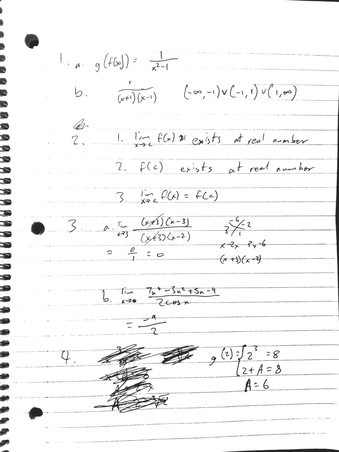 1. a. g(f(x)) = 1/(x²-1)
b. 1/((x+1)(x-1)) (-∞,-1)∪(-1,1)∪(1,∞)
2. 1. lim x→c f(x) exists at real number
2. f(c) exists at real number
3. lim x→c f(x) = f(c)
3 a. lim x→3 (x+3)(x-3)/(x+3)(x-2)
= 0/1 = 0
(x+3)(x-2)
b. lim x→0 (7x⁴-3x²+5x-9)/(2cosx)
= -9/2
4. g(2) = 2³ = 8
2+A = 8
A = 6